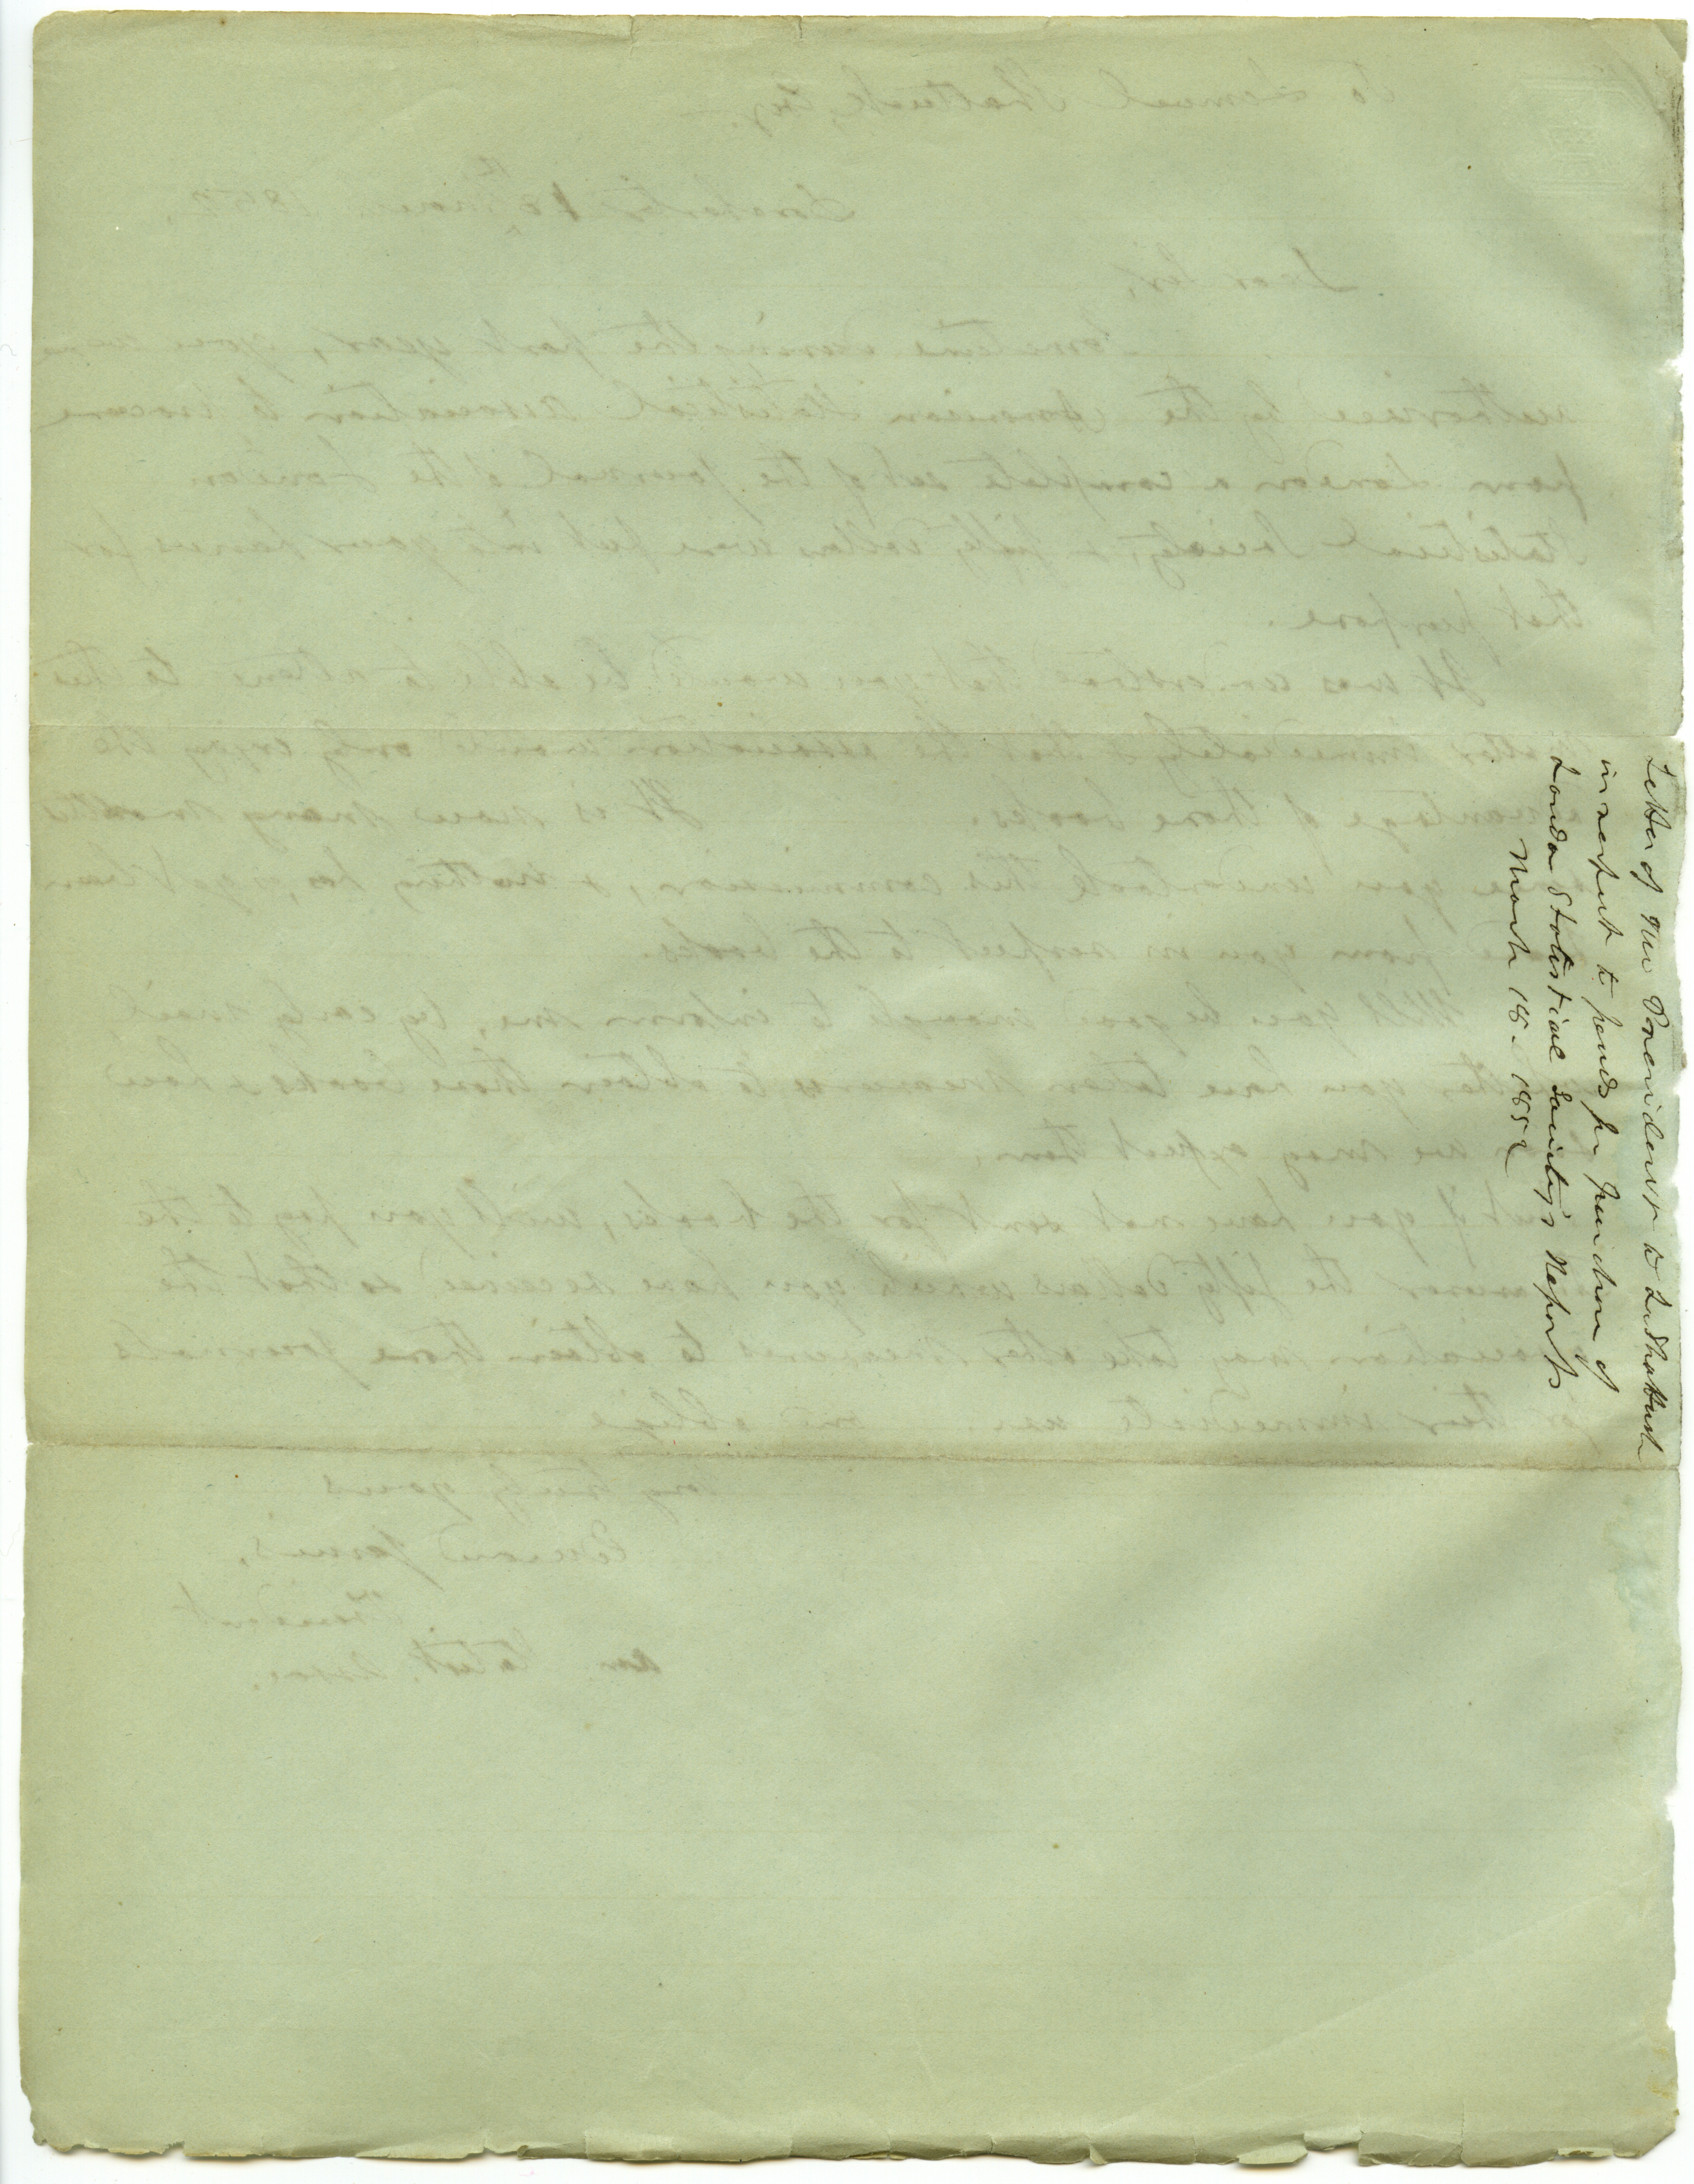 Letter of the President to L Shattuck
in respect to funds for purchase of
London Statistical Society's Reports
March 18. 1852
To Lemuel Shattuck, Esq.
Dorchester 18th March 1852,
Dear Sir,
Sometime during the past year, you were
authorised by the American Statistical Association to procure
from London a complete set of the Journal of the London
Statistical Society, & fifty dollars were put into your hands for
that purpose.
It was understood that you would be able to attend to this
matter immediately & that the association would early enjoy the
advantage of those books. It is now many months
since you undertook this commission, & nothing has, as yet been
from you in respect to the books.
Will you be good enough to inform me, by early mail
whether you have taken measures to obtain those books & how
we may expect them.
But if you have not sent for the books, will you pay to the
the fifty dollars which you have received so that the
association may take other measures to obtain those journals
for their immediate use. and oblige
very truly yours
Edward Jarvis,
President
Am. Statist. Assoc.